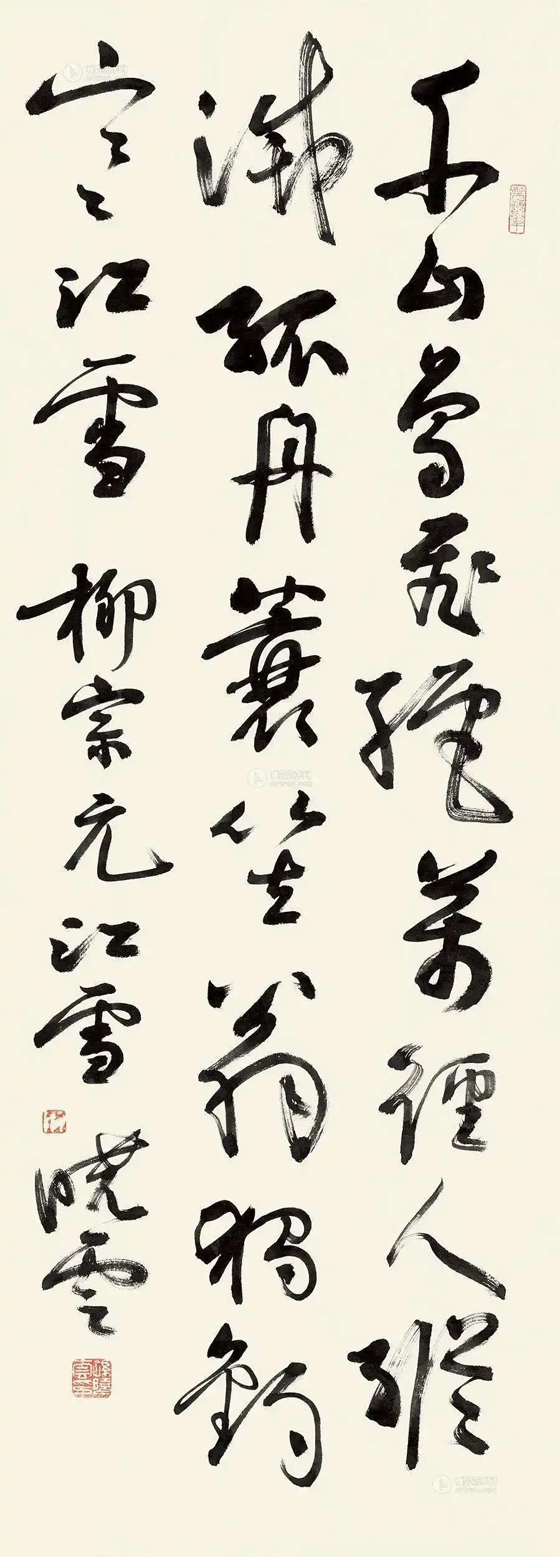 千山鳥飛絕萬徑人縱
滅孤舟蓑笠翁獨釣
寒江雪 柳宗元江雪 曉雲